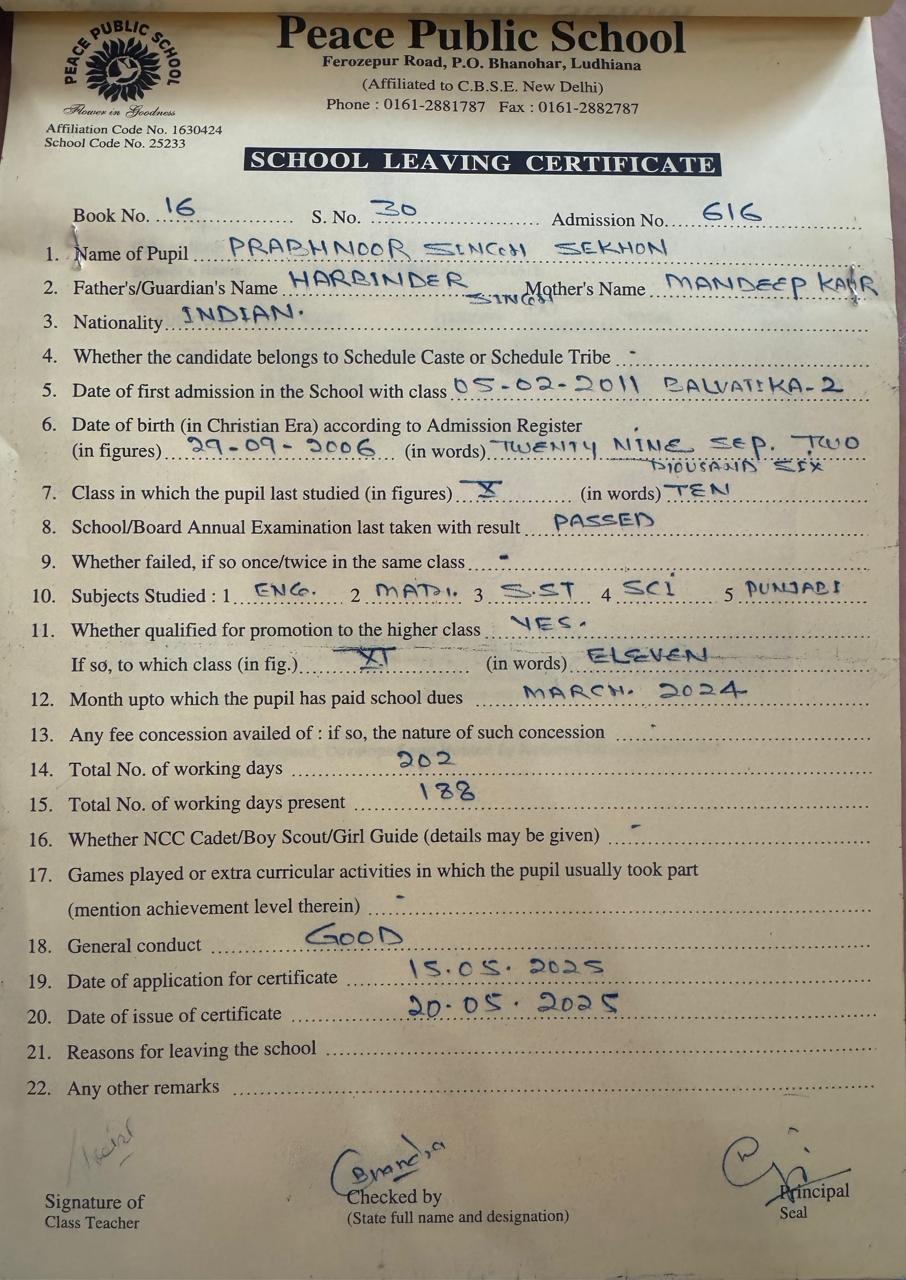 PEACE PUBLIC SCHOOL
Flower in Goodness
Affiliation Code No. 1630424
School Code No. 25233
Peace Public School
Ferozepur Road, P.O. Bhanohar, Ludhiana
(Affiliated to C.B.S.E. New Delhi)
Phone : 0161-2881787 Fax : 0161-2882787
SCHOOL LEAVING CERTIFICATE
Book No. 16 S. No. 30 Admission No. 616
1. Name of Pupil PRABHNOOR SINGH SEKHON
2. Father's/Guardian's Name HARBINDER SINGH Mother's Name MANDEEP KAUR
3. Nationality INDIAN.
4. Whether the candidate belongs to Schedule Caste or Schedule Tribe -
5. Date of first admission in the School with class 05-02-2011 BALVATIKA-2
6. Date of birth (in Christian Era) according to Admission Register
(in figures) 29-09-2006 (in words) TWENTY NINE SEP. TWO
THOUSAND SIX
7. Class in which the pupil last studied (in figures) X (in words) TEN
8. School/Board Annual Examination last taken with result PASSED
9. Whether failed, if so once/twice in the same class -
10. Subjects Studied : 1 ENG. 2 MATH. 3 S.ST 4 SCI 5 PUNJABI
11. Whether qualified for promotion to the higher class YES.
If so, to which class (in fig.) XI (in words) ELEVEN
12. Month upto which the pupil has paid school dues MARCH. 2024
13. Any fee concession availed of : if so, the nature of such concession -
14. Total No. of working days 202
15. Total No. of working days present 188
16. Whether NCC Cadet/Boy Scout/Girl Guide (details may be given) -
17. Games played or extra curricular activities in which the pupil usually took part
(mention achievement level therein) -
18. General conduct GOOD
19. Date of application for certificate 15.05.2025
20. Date of issue of certificate 20.05.2025
21. Reasons for leaving the school
22. Any other remarks
Signature of
Class Teacher
Checked by
(State full name and designation)
Principal
Seal